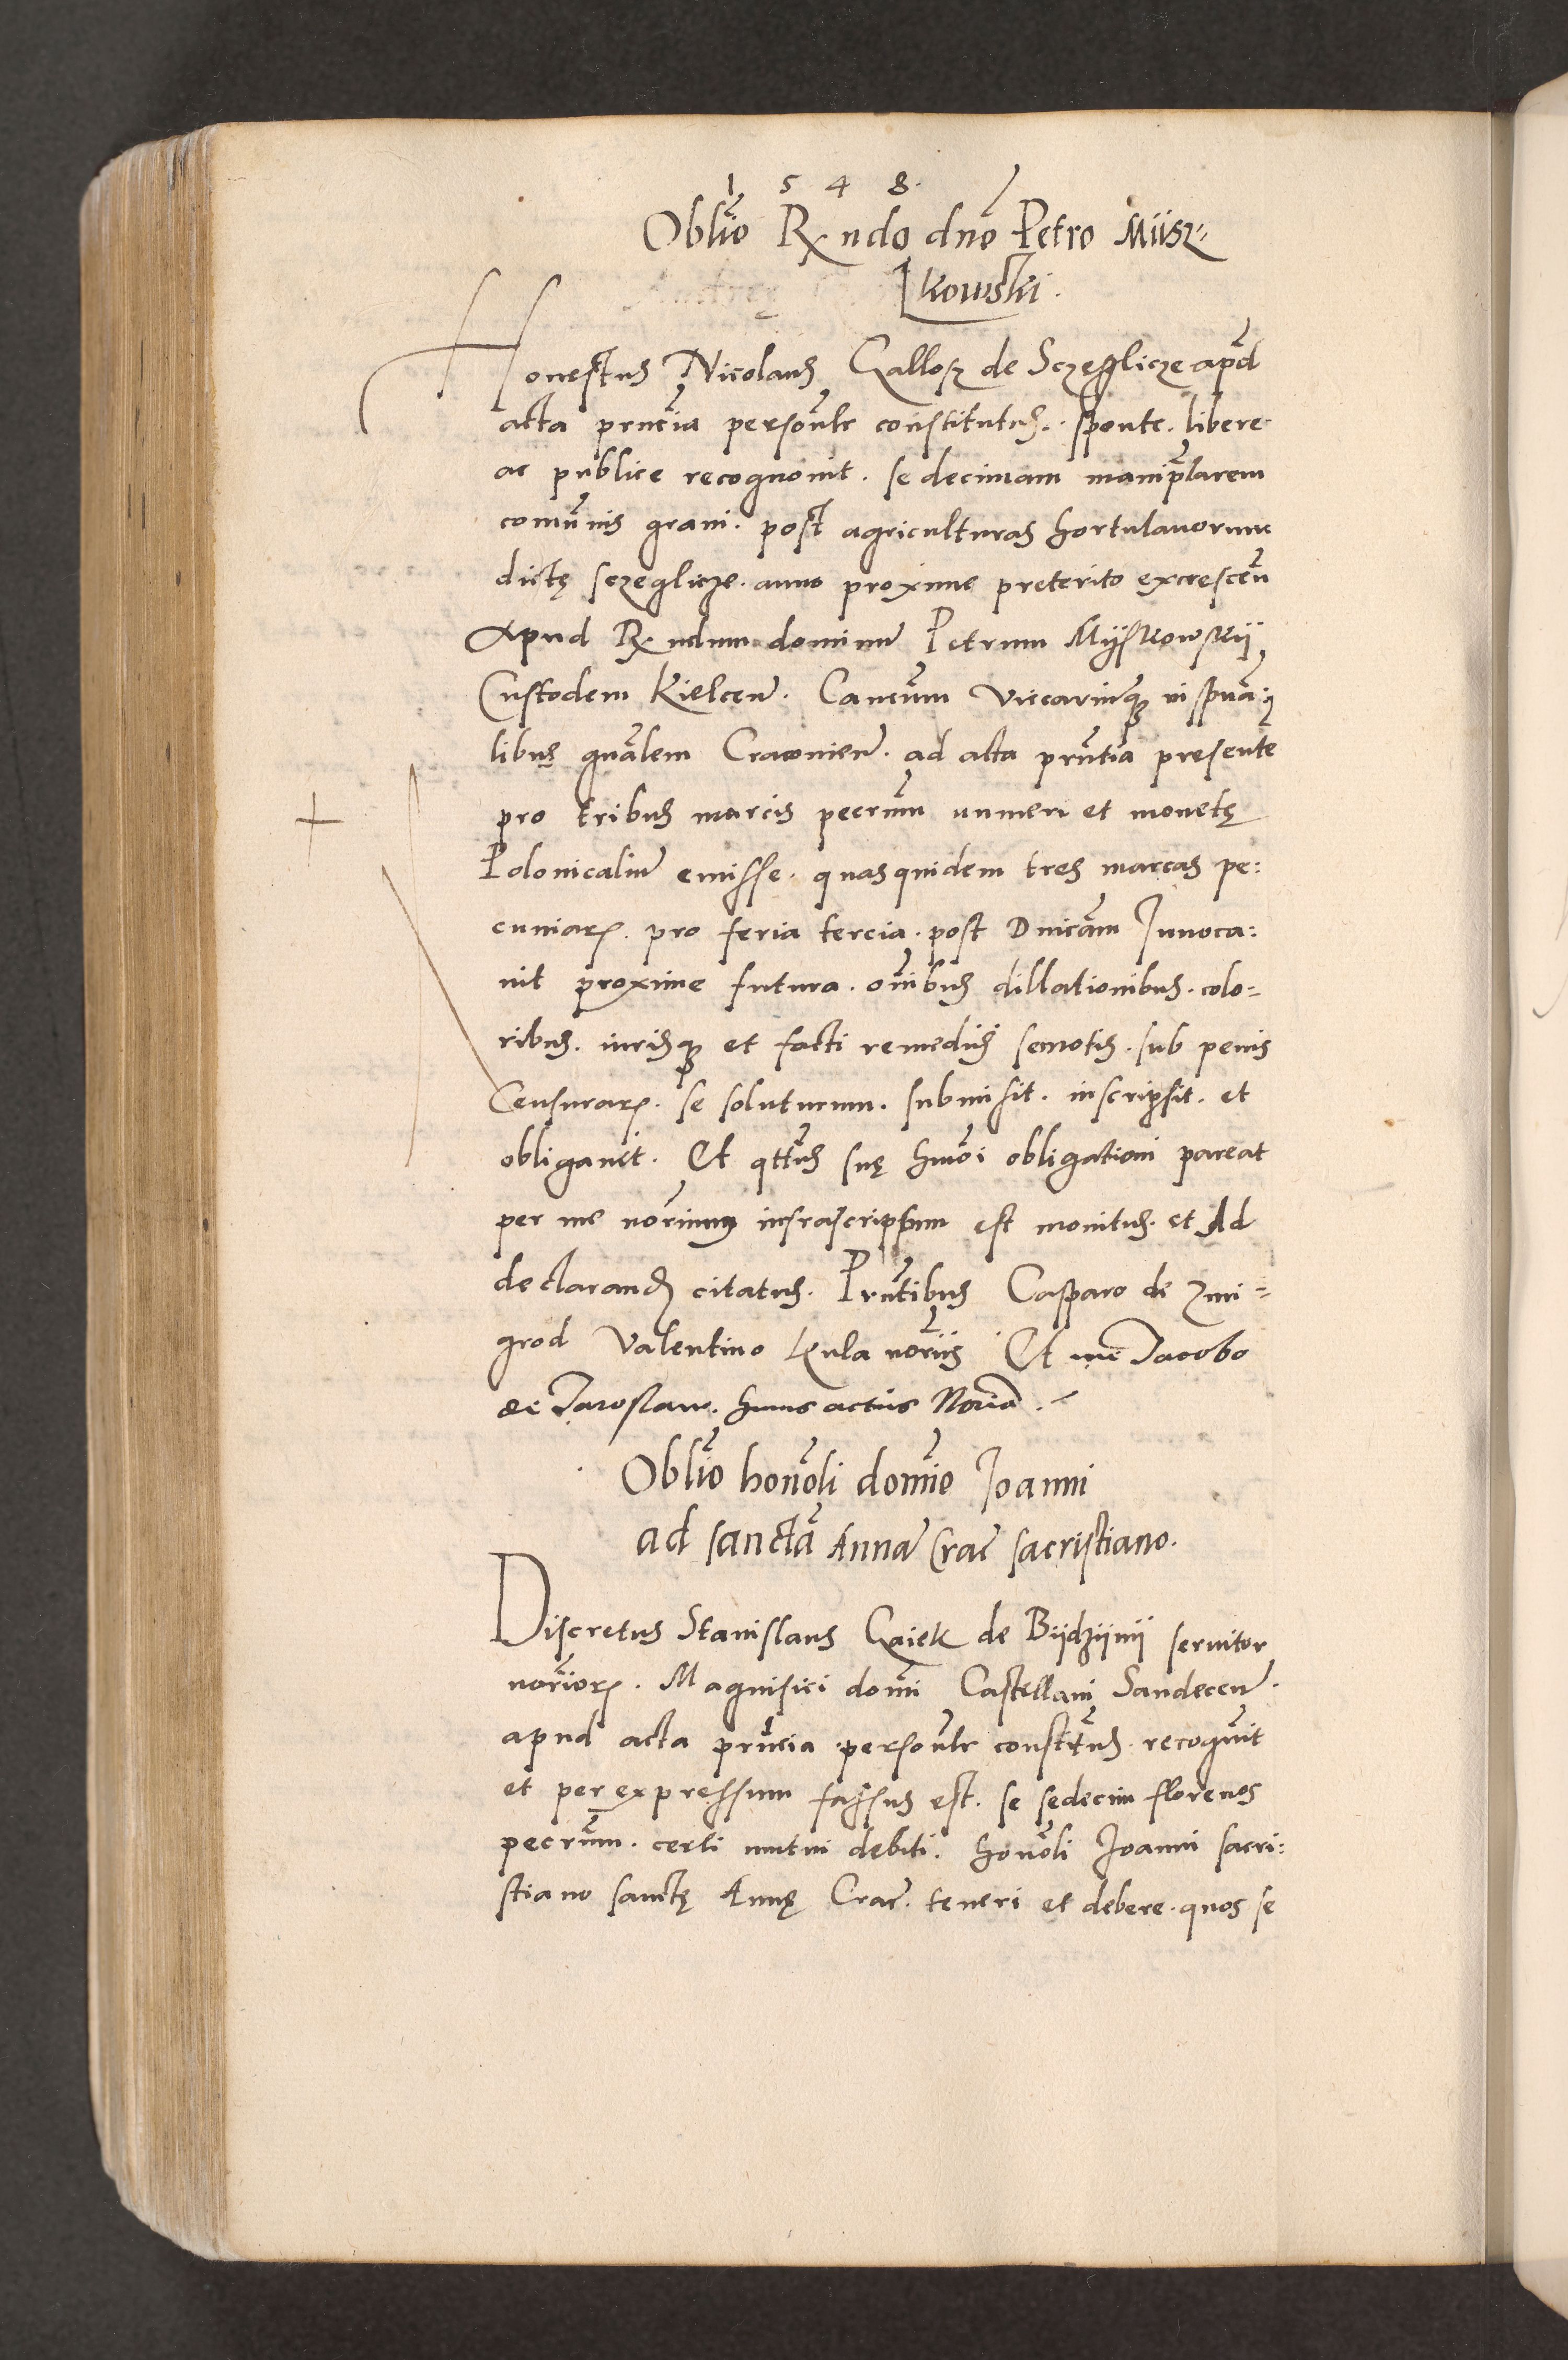 1548.
Obliō Rx ndo dnō Petro Miisz=
kowski.
Honestus Nicolaus Gallosz de Sczeglicze apud
acta prn̄cia personl̄r constitutus. sponte. libere
ac publice recognovit. se decimam manipl̄arem
comūnis grani. post agriculturas hortulanorum
dictę sczeglicze. anno proxime preterito excrescen̄
Apud Rx ndum dominum Petrum Myiskowskii
Custodem Kielcen̄. Cancūm Viccariūqꝫ in spūa=
libus gnālem Cracovien̄. ad acta prn̄tia presentē
pro tribus marcis pecc̄rum numeri et monetę
Polonicaliū emisse. quas quidem tres marcas pe:
cuniarꝫ. pro feria tercia. post Dnicām Invoca:
vit proxime futura. on̄ibus dillationibus. colo=
ribus. iurisqꝫ et facti remediis semotis. sub penis
Censurarꝫ. se soluturum. submisit. inscripsit. et
obligavit. Et qtt̄us suę hmōi obligationi pareat
per me nōrium infrascriptum est monitus. et Ad
declarandꝫ citatus. Prn̄tibus Casparo de Zmi=
grod Valentino Kula nōriis Et me Jacobo
de Jaroslaw. huius actus Noriō.
Obliō honōli domīo Joanni
ad sanctā Annā Crac̄ sacristiano.
Discretus Stanislaus Gaiek de Biidziinii servitor
nōriorꝫ. Magnifici domī Castellani Sandecen̄.
apud acta prn̄cia personl̄r constitūs. recogn̄it
et per expressum fassus est. se sedecim florenos
pecc̄rum. certi mutui debiti. honōli Joanni sacri:
stiano sanctę Annę Crac̄. teneri et debere. quos se